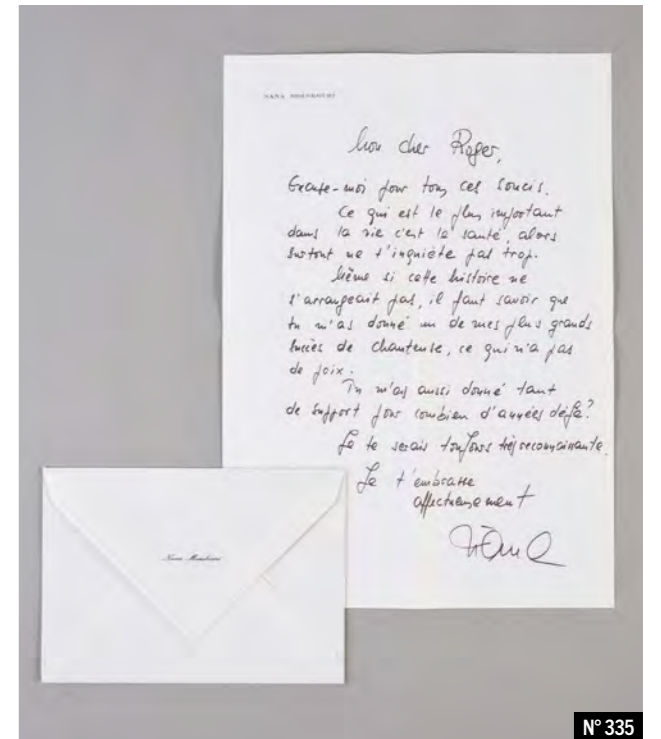 NANA MOUSKOURI
Mon cher Roger,
Excuse-moi pour tous ces soucis.
Ce qui est le plus important
dans la vie c'est la santé, alors
surtout ne t'inquiète pas trop.
Même si cette histoire ne
s'arrangeait pas, il faut savoir que
tu m'as donné un de mes plus grands
succès de chanteuse, ce qui n'a pas
de prix.
Tu m'as aussi donné tant
de support pour combien d'années déjà?
Je te serais toujours très reconnaissante.
Je t'embrasse
affectueusement
Nana
Nana Mouskouri
N° 335